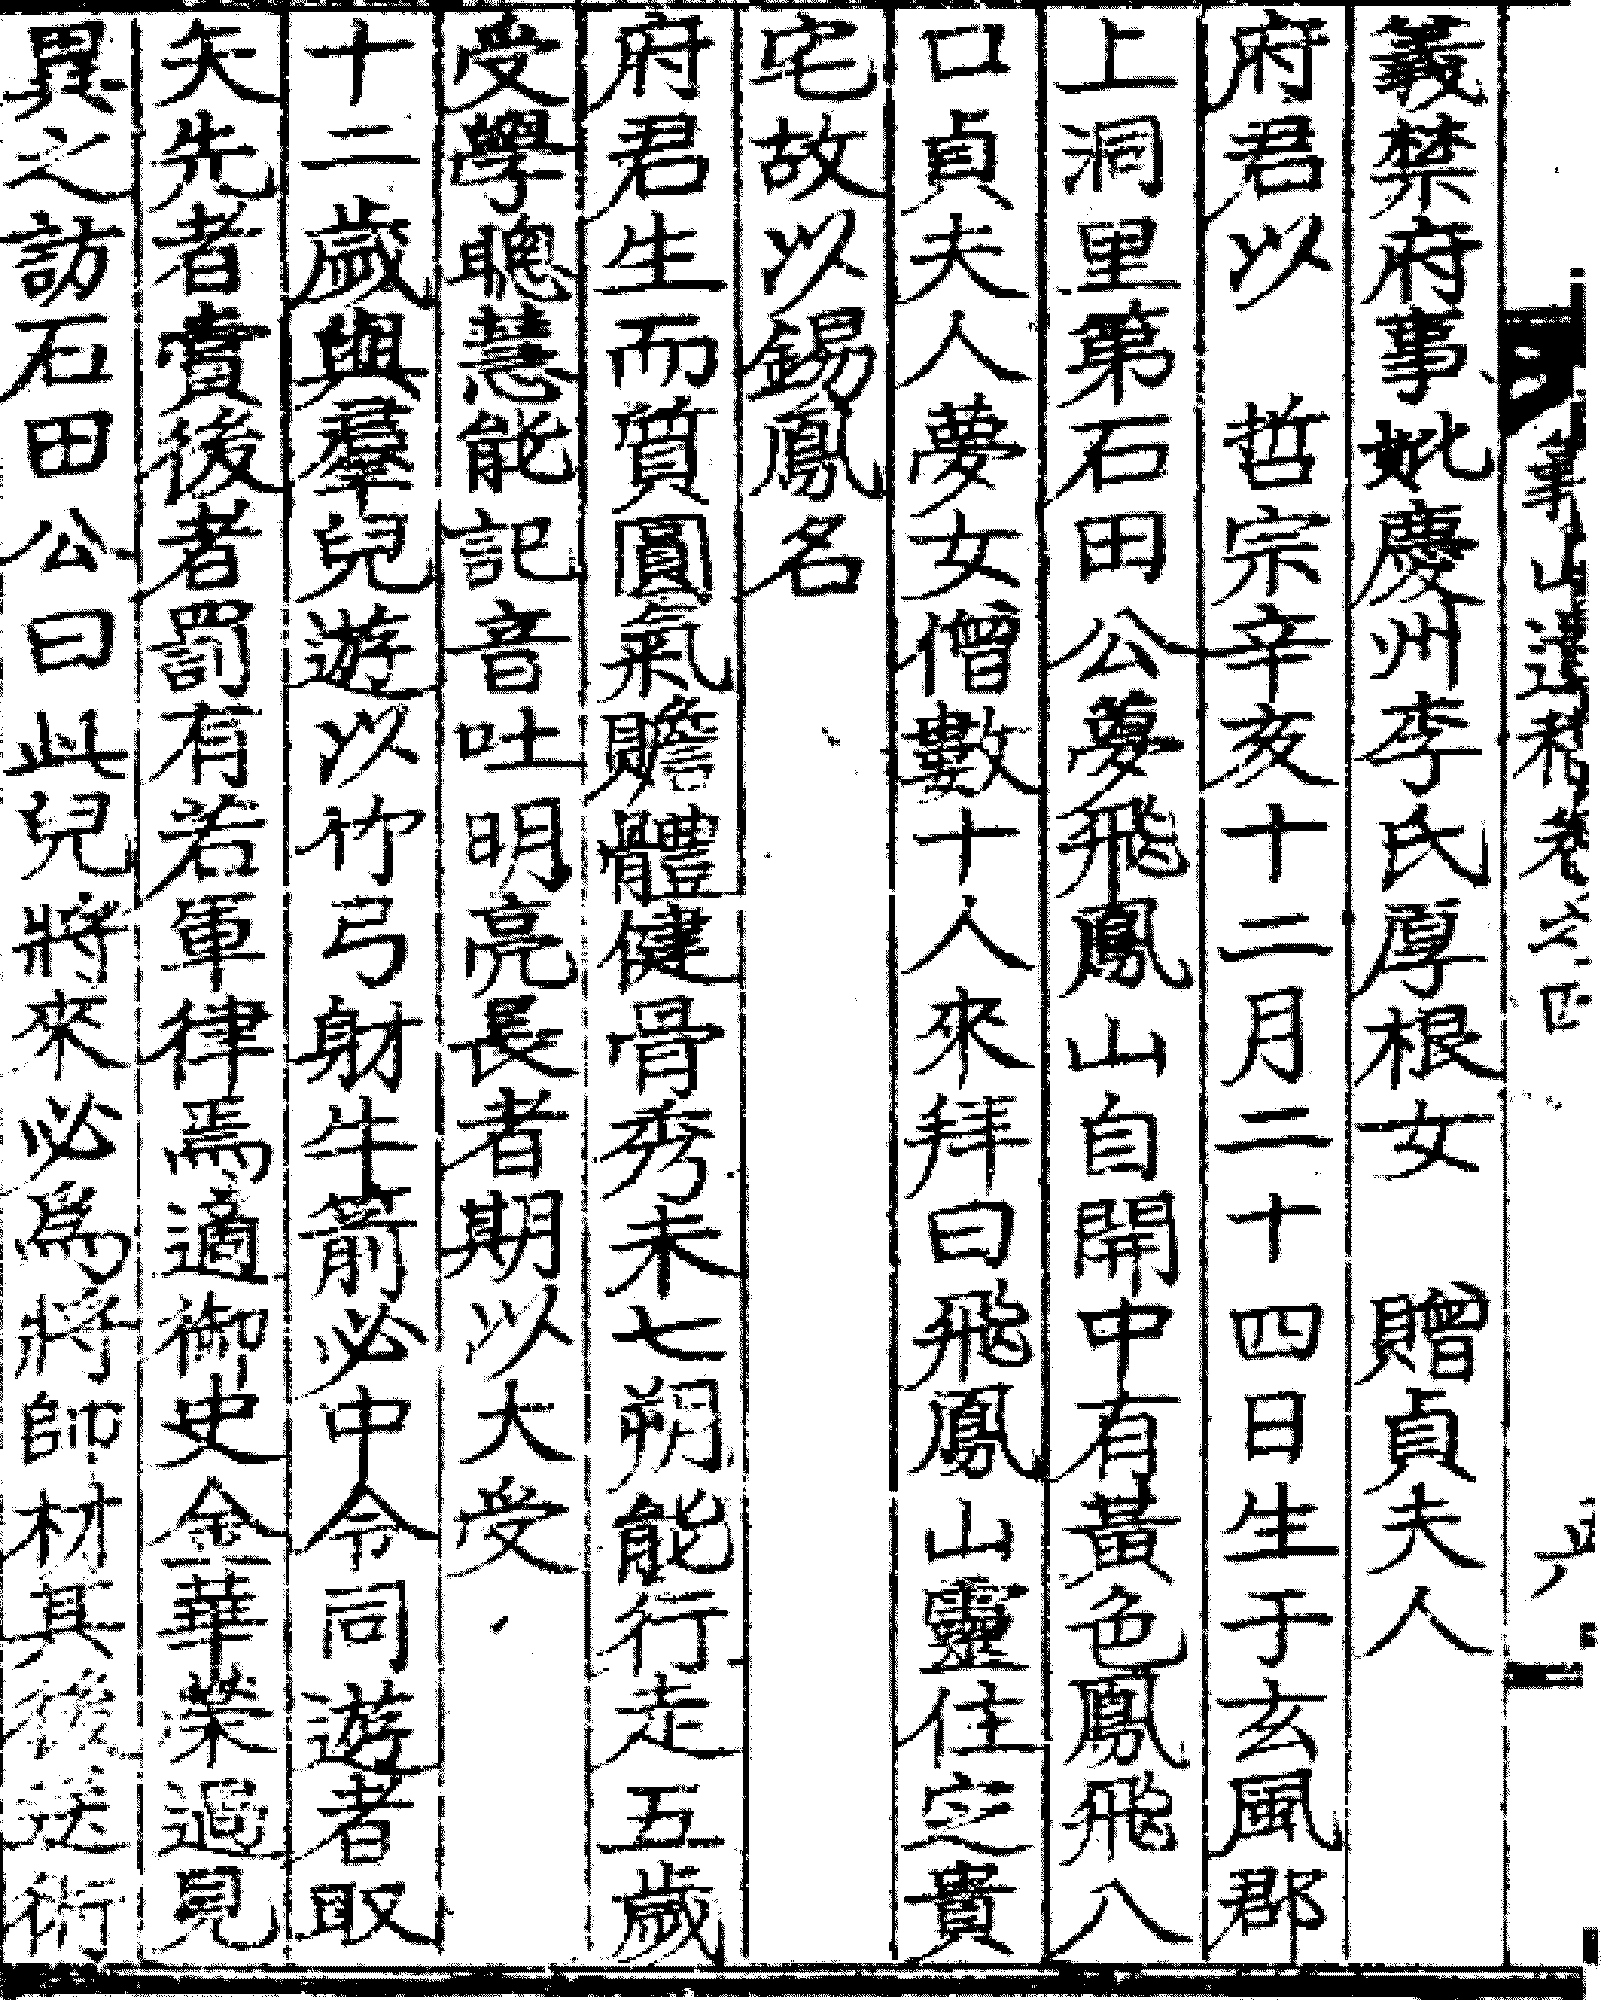 義禁府事妣慶州李氏厚根女 贈貞夫人
府君以 哲宗辛亥十二月二十四日生于玄風郡
上洞里第石田公夢飛鳳山自開中有黃色鳳飛八
口貞夫人夢女僧數十人來拜曰飛鳳山靈住定貴
宅故以錫鳳名
府君生而質圓氣贍體健骨秀未七朔能行走五歲
受學聰慧能記音吐明亮長者期以大受
十二歲與羣兒遊以竹弓射牛箭必中令同遊者取
矢先者賞後者罰有若軍律焉適御史金華榮過見
異之訪石田公曰此兒將來必爲將帥材其後送術